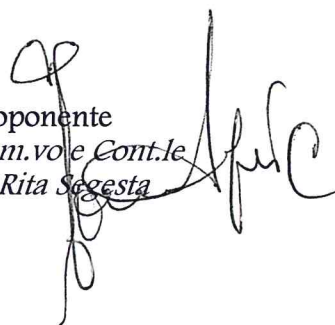 oponente
m.vo e Cont.le
Rita Segesta